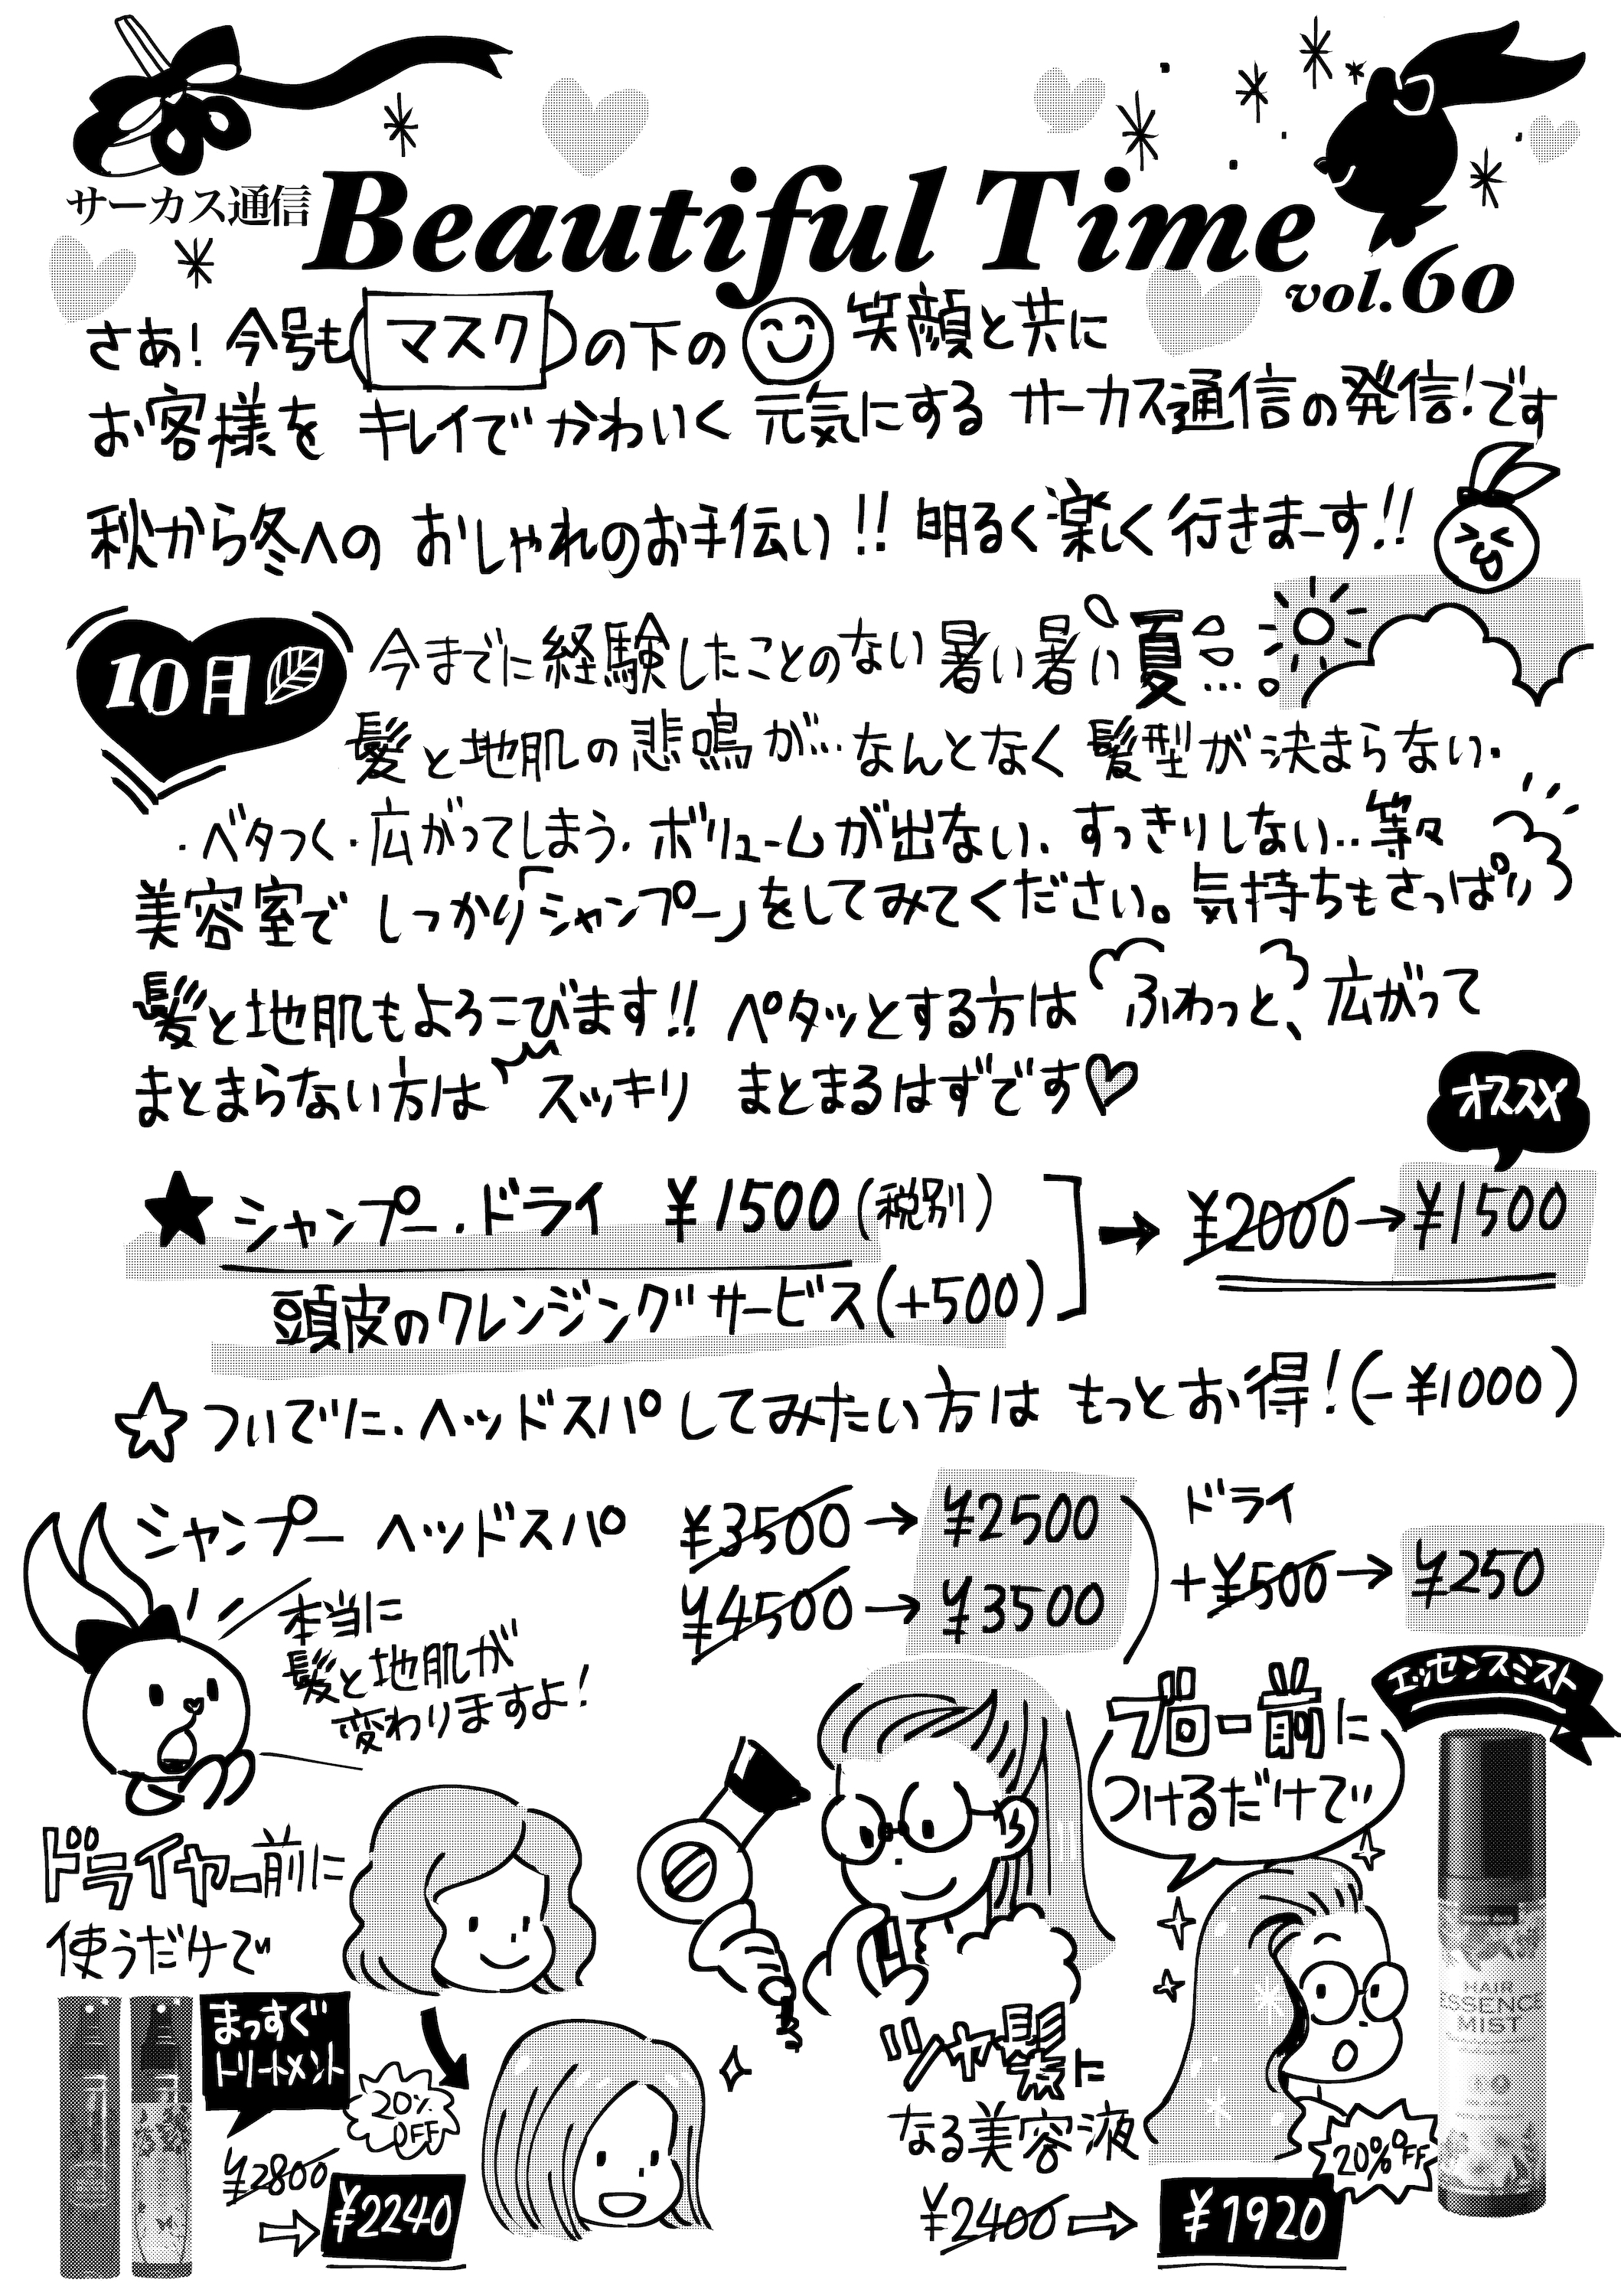 サーカス通信 Beautiful Time
vol.60
さあ! 今号も マスク の下の 笑顔と共に
お客様を キレイで かわいく 元気にする サーカス通信の発信!です
秋から冬への おしゃれのお手伝い!! 明るく楽しく行きまーす!!
10月
今までに経験したことのない暑い暑い夏...。
髪と地肌の悲鳴が... なんとなく 髪型が決まらない・
・ベタつく・広がってしまう・ボリュームが出ない、すっきりしない...等々
美容室で しっかり「シャンプー」をしてみてください。気持ちもさっぱり
髪と地肌もよろこびます!! ペタッとする方は ふわっと、広がって
まとまらない方は スッキリ まとまるはずです♡
オススメ
★シャンプー・ドライ ¥1500(税別)
頭皮のクレンジングサービス(+500)
→ ¥2000→¥1500
☆ついでに・ヘッドスパしてみたい方は もっとお得!(-¥1000)
シャンプー ヘッドスパ ¥3500→¥2500
¥4500→¥3500
ドライ
+¥500→¥250
本当に
髪と地肌が
変わりますよ!
エッセンスミスト
ブロー前に
つけるだけで
ドライヤー前に
使うだけで
まっすぐ
トリートメント
20%
OFF
¥2800
⇒ ¥2240
ツヤ髪に
なる美容液
¥2400⇒ ¥1920
20%OFF
HAIR
ESSENCE
MIST